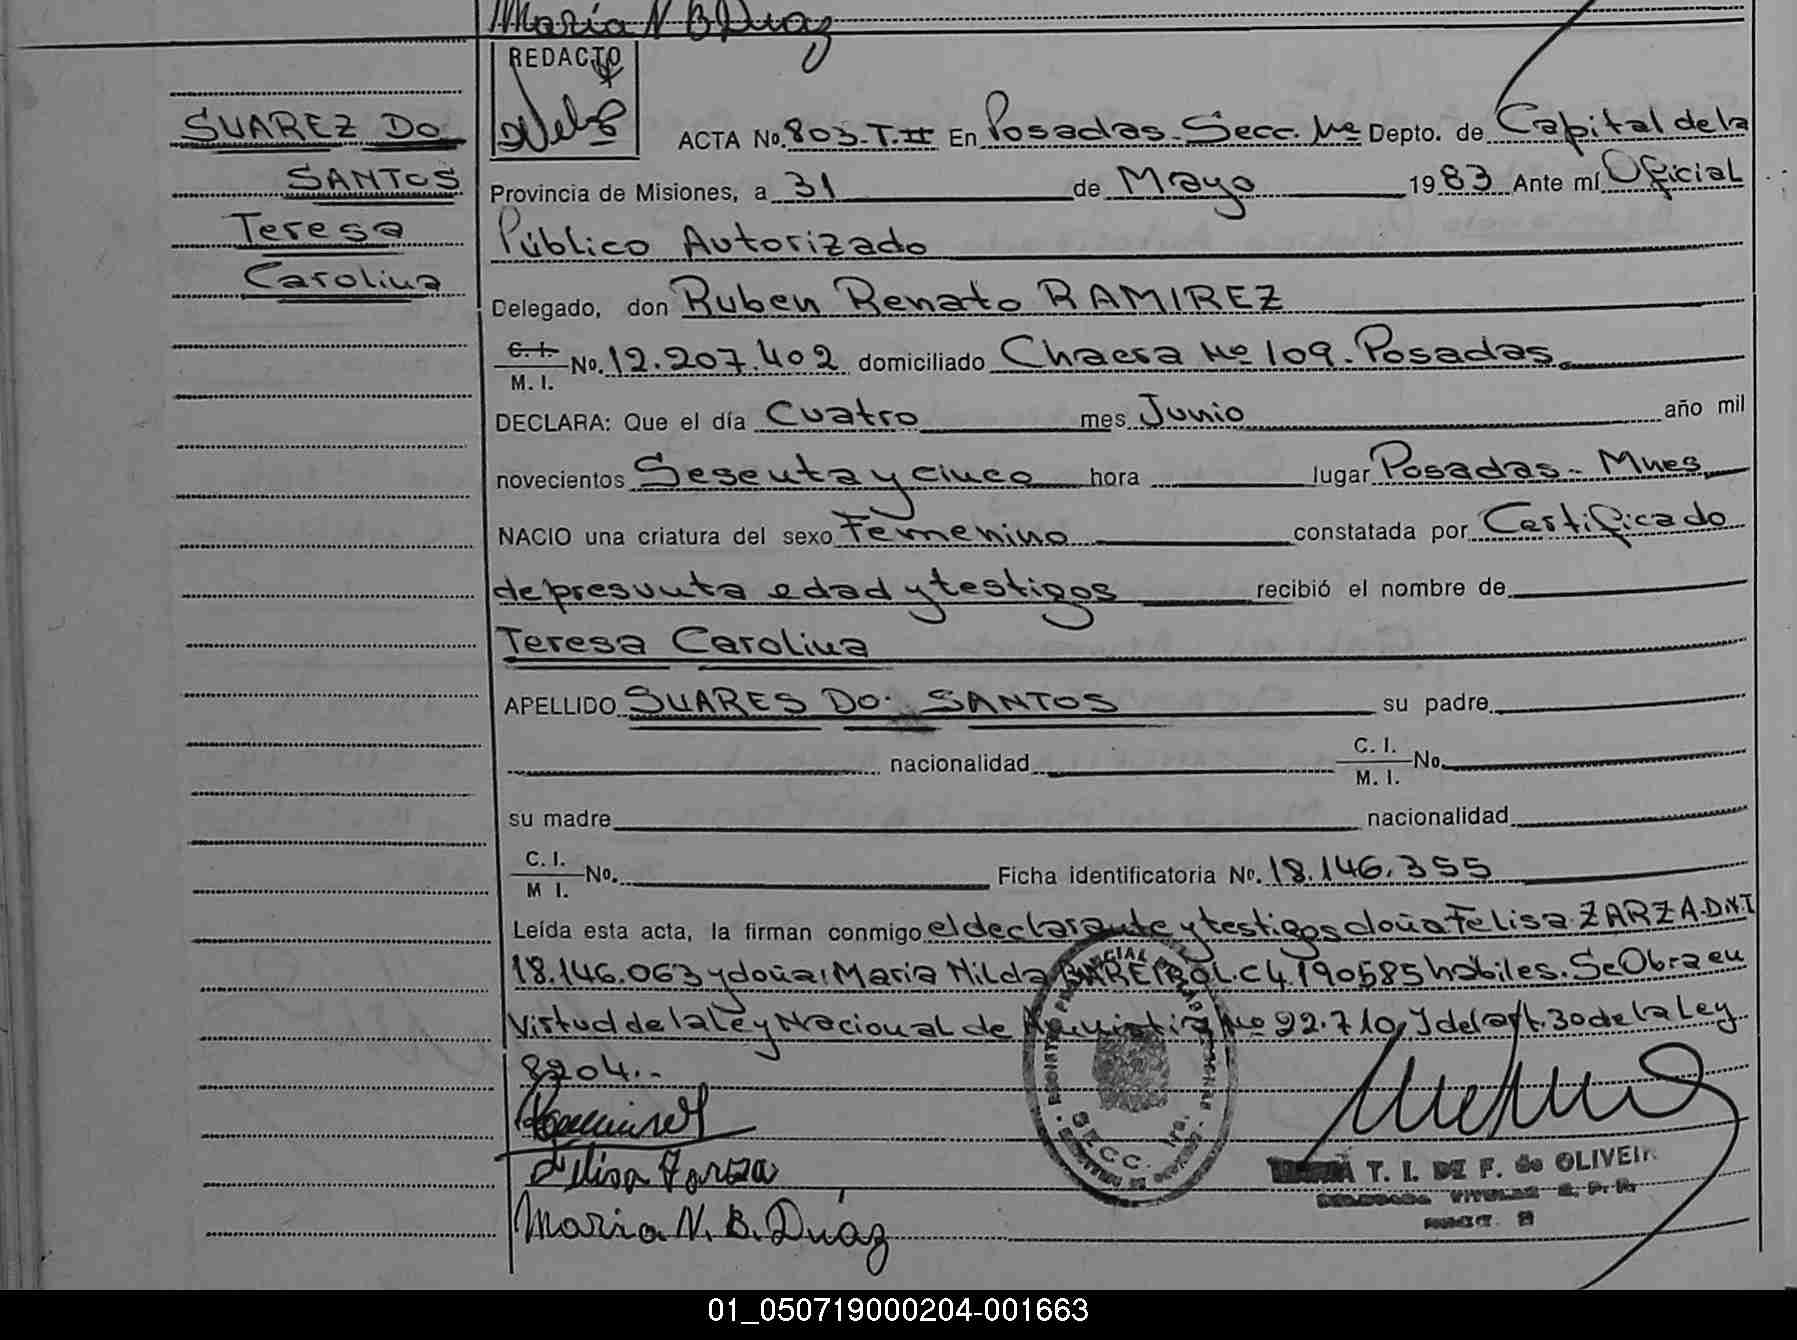 Maria N B Duaz
REDACTO
SUAREZ DO
SANTOS
Teresa
Carolina
ACTA No. 803-T.II En Posadas-Secc. 1ra Depto. de Capital de la
Provincia de Misiones, a 31 de Mayo 1983 Ante mí Oficial
Público Autorizado
Delegado, don Ruben Renato RAMIREZ
C. I.
M. I. No. 12.207.402 domiciliado Chacra Nº 109-Posadas
DECLARA: Que el día Cuatro mes Junio año mil
novecientos Sesenta y cinco hora lugar Posadas-Mnes
NACIO una criatura del sexo Femenino constatada por Certificado
de presunta edad y testigos recibió el nombre de
Teresa Carolina
APELLIDO SUARES DO SANTOS su padre
nacionalidad C. I. M. I. No.
su madre nacionalidad
C. I. M I. No. Ficha identificatoria Nº. 18.146.355
Leída esta acta, la firman conmigo el declarante y testigos doña Felisa ZARZA-D.N.I
18.146.063 y doña: Maria Nilda BAREIRO L.C 4.190585 habiles. Se Obra en
Virtud de la Ley Nacional de Amnistia Nº 22.710, y del art. 30 de la Ley
8204.-
Felisa Zarza
Maria N. B. Duaz
SECC. 1ra.
T. I. DE F. de OLIVEIR
01_050719000204-001663